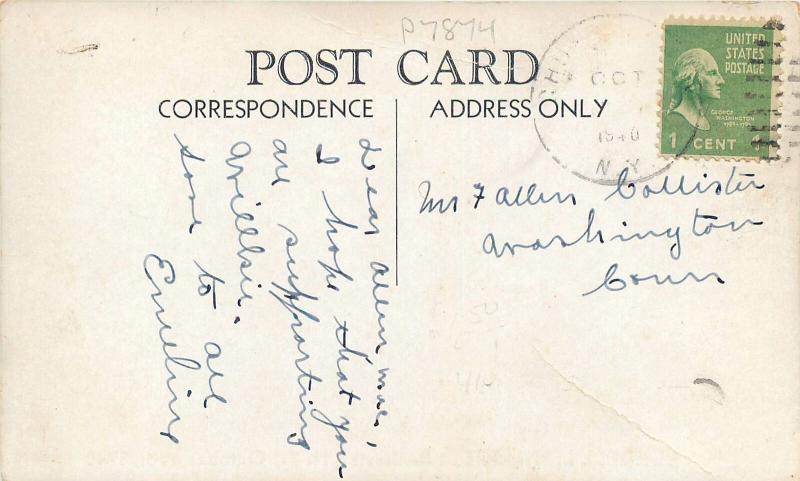 P7874
POST CARD
CORRESPONDENCE
ADDRESS ONLY
UNITED
STATES
POSTAGE
GEORGE
WASHINGTON
1789-1797
1 CENT 1
OCT
1940
N.Y.
Mrs F Allen Collister
Washington
Conn
Dear Allen
I hope that you
are supporting
Willkie.
Love to all
Emeline